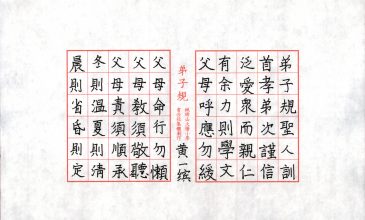 弟子規聖人訓
首孝弟次謹信
泛愛衆而親仁
有余力則學文
父母呼應勿緩
弟子規
黄一缤
父母命行勿懶
父母教須敬聽
父母責須順承
冬則溫夏則清
晨則省昏則定